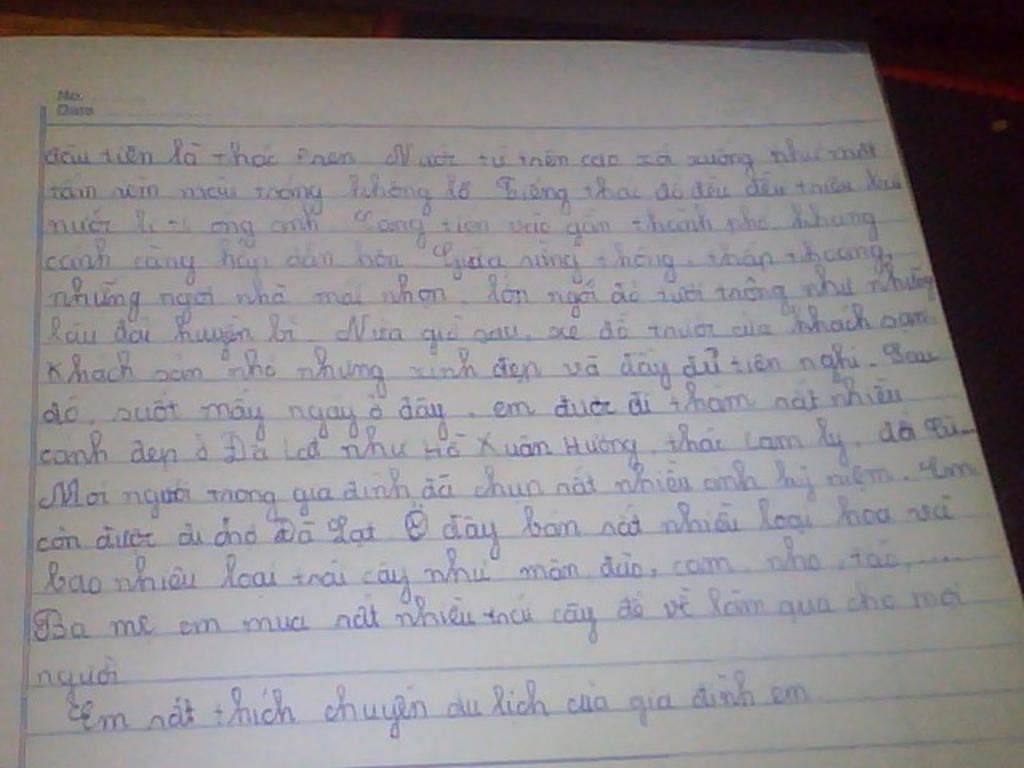 No.
Date
đầu tiên là thác Pren Nước từ trên cao xả xuống như một
tấm màu trắng khổng lồ Tiếng thác đổ đều đều
nước li ti óng ánh Càng tiến vào gần thành phố khung
cảnh càng hấp dẫn hơn. Giữa rừng thông, thấp thoáng,
những ngôi nhà mái nhọn, lợp ngói đỏ tươi trông như những
lâu đài huyền bí. Nửa giờ sau, xe đỗ trước cửa khách sạn.
Khách sạn nhỏ nhưng xinh đẹp và đầy đủ tiện nghi. Sau
đó, suốt mấy ngày ở đây, em được đi thăm rất nhiều
cảnh đẹp ở Đà Lạt như Hồ Xuân Hương, thác Cam ly,
Mọi người trong gia đình đã chụp rất nhiều ảnh kỷ niệm. Em
còn được đi chợ Đà Lạt Ở đây bán rất nhiều loại hoa và
bao nhiêu loại trái cây như mận, đào, cam, nho, táo, ....
Ba mẹ em mua rất nhiều trái cây để về làm quà cho mọi
người
Em rất thích chuyến du lịch của gia đình em